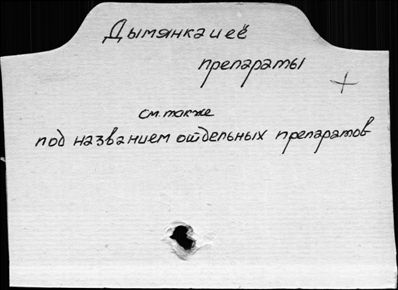 Дымянка и её
препараты
см. также
под названием отдельных препаратов